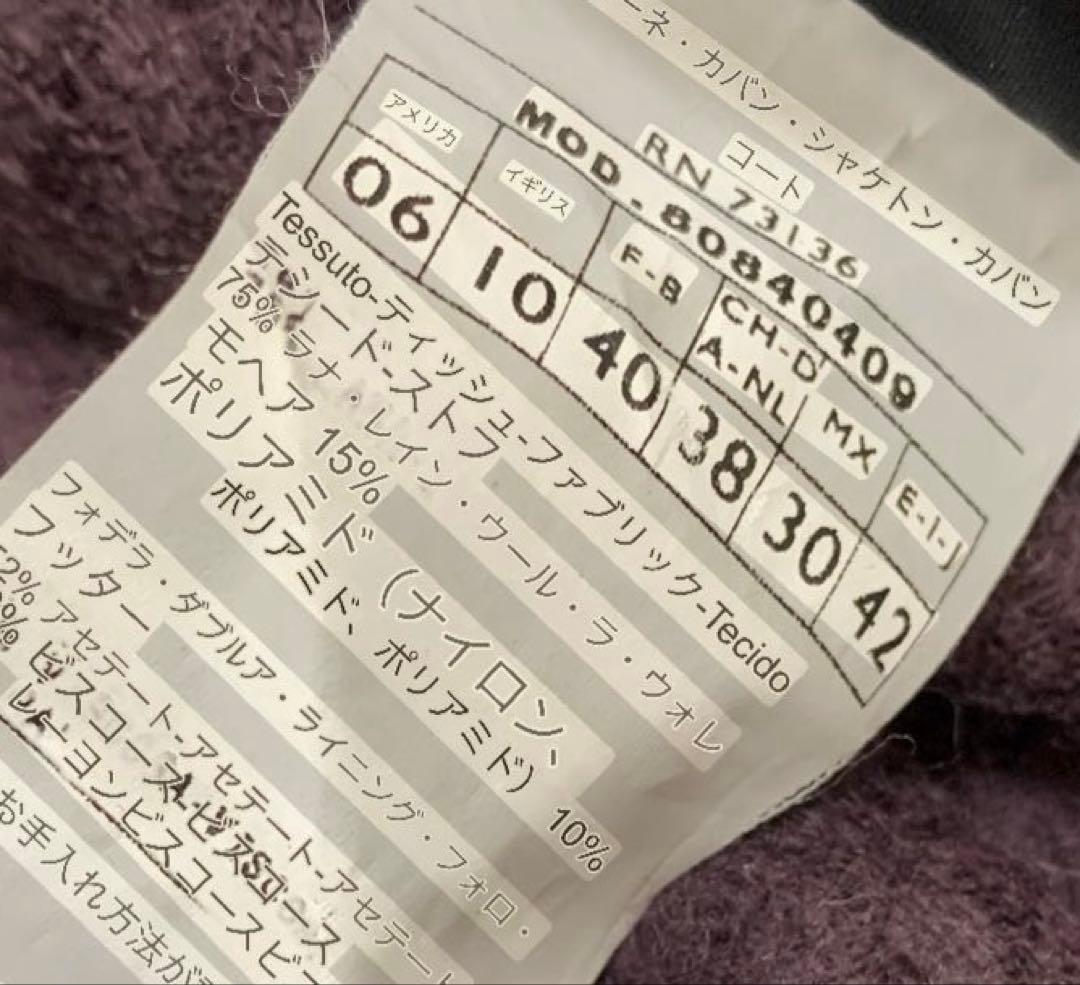 ーネ・カバン・シャケトン・カバン
コート
RN 73136
MOD.80840409
アメリカ イギリス F-B CH-D A-NL MX E-I-J
06 10 40 38 30 42
Tessuto-ティッシュ-ファブリック-Tecido
テシード-ストフ
75% ラナ・レイン・ウール・ラ・ウォレ
モヘア 15%
ポリアミド (ナイロン、
ポリアミド、ポリアミド) 10%
フォデラ・ダブルア・ライニング・フォロ・
フッター
52% アセテート-アセテート-アセテート
ビスコース-ビスコース
レーヨンビスコースビ
お手入れ方法が